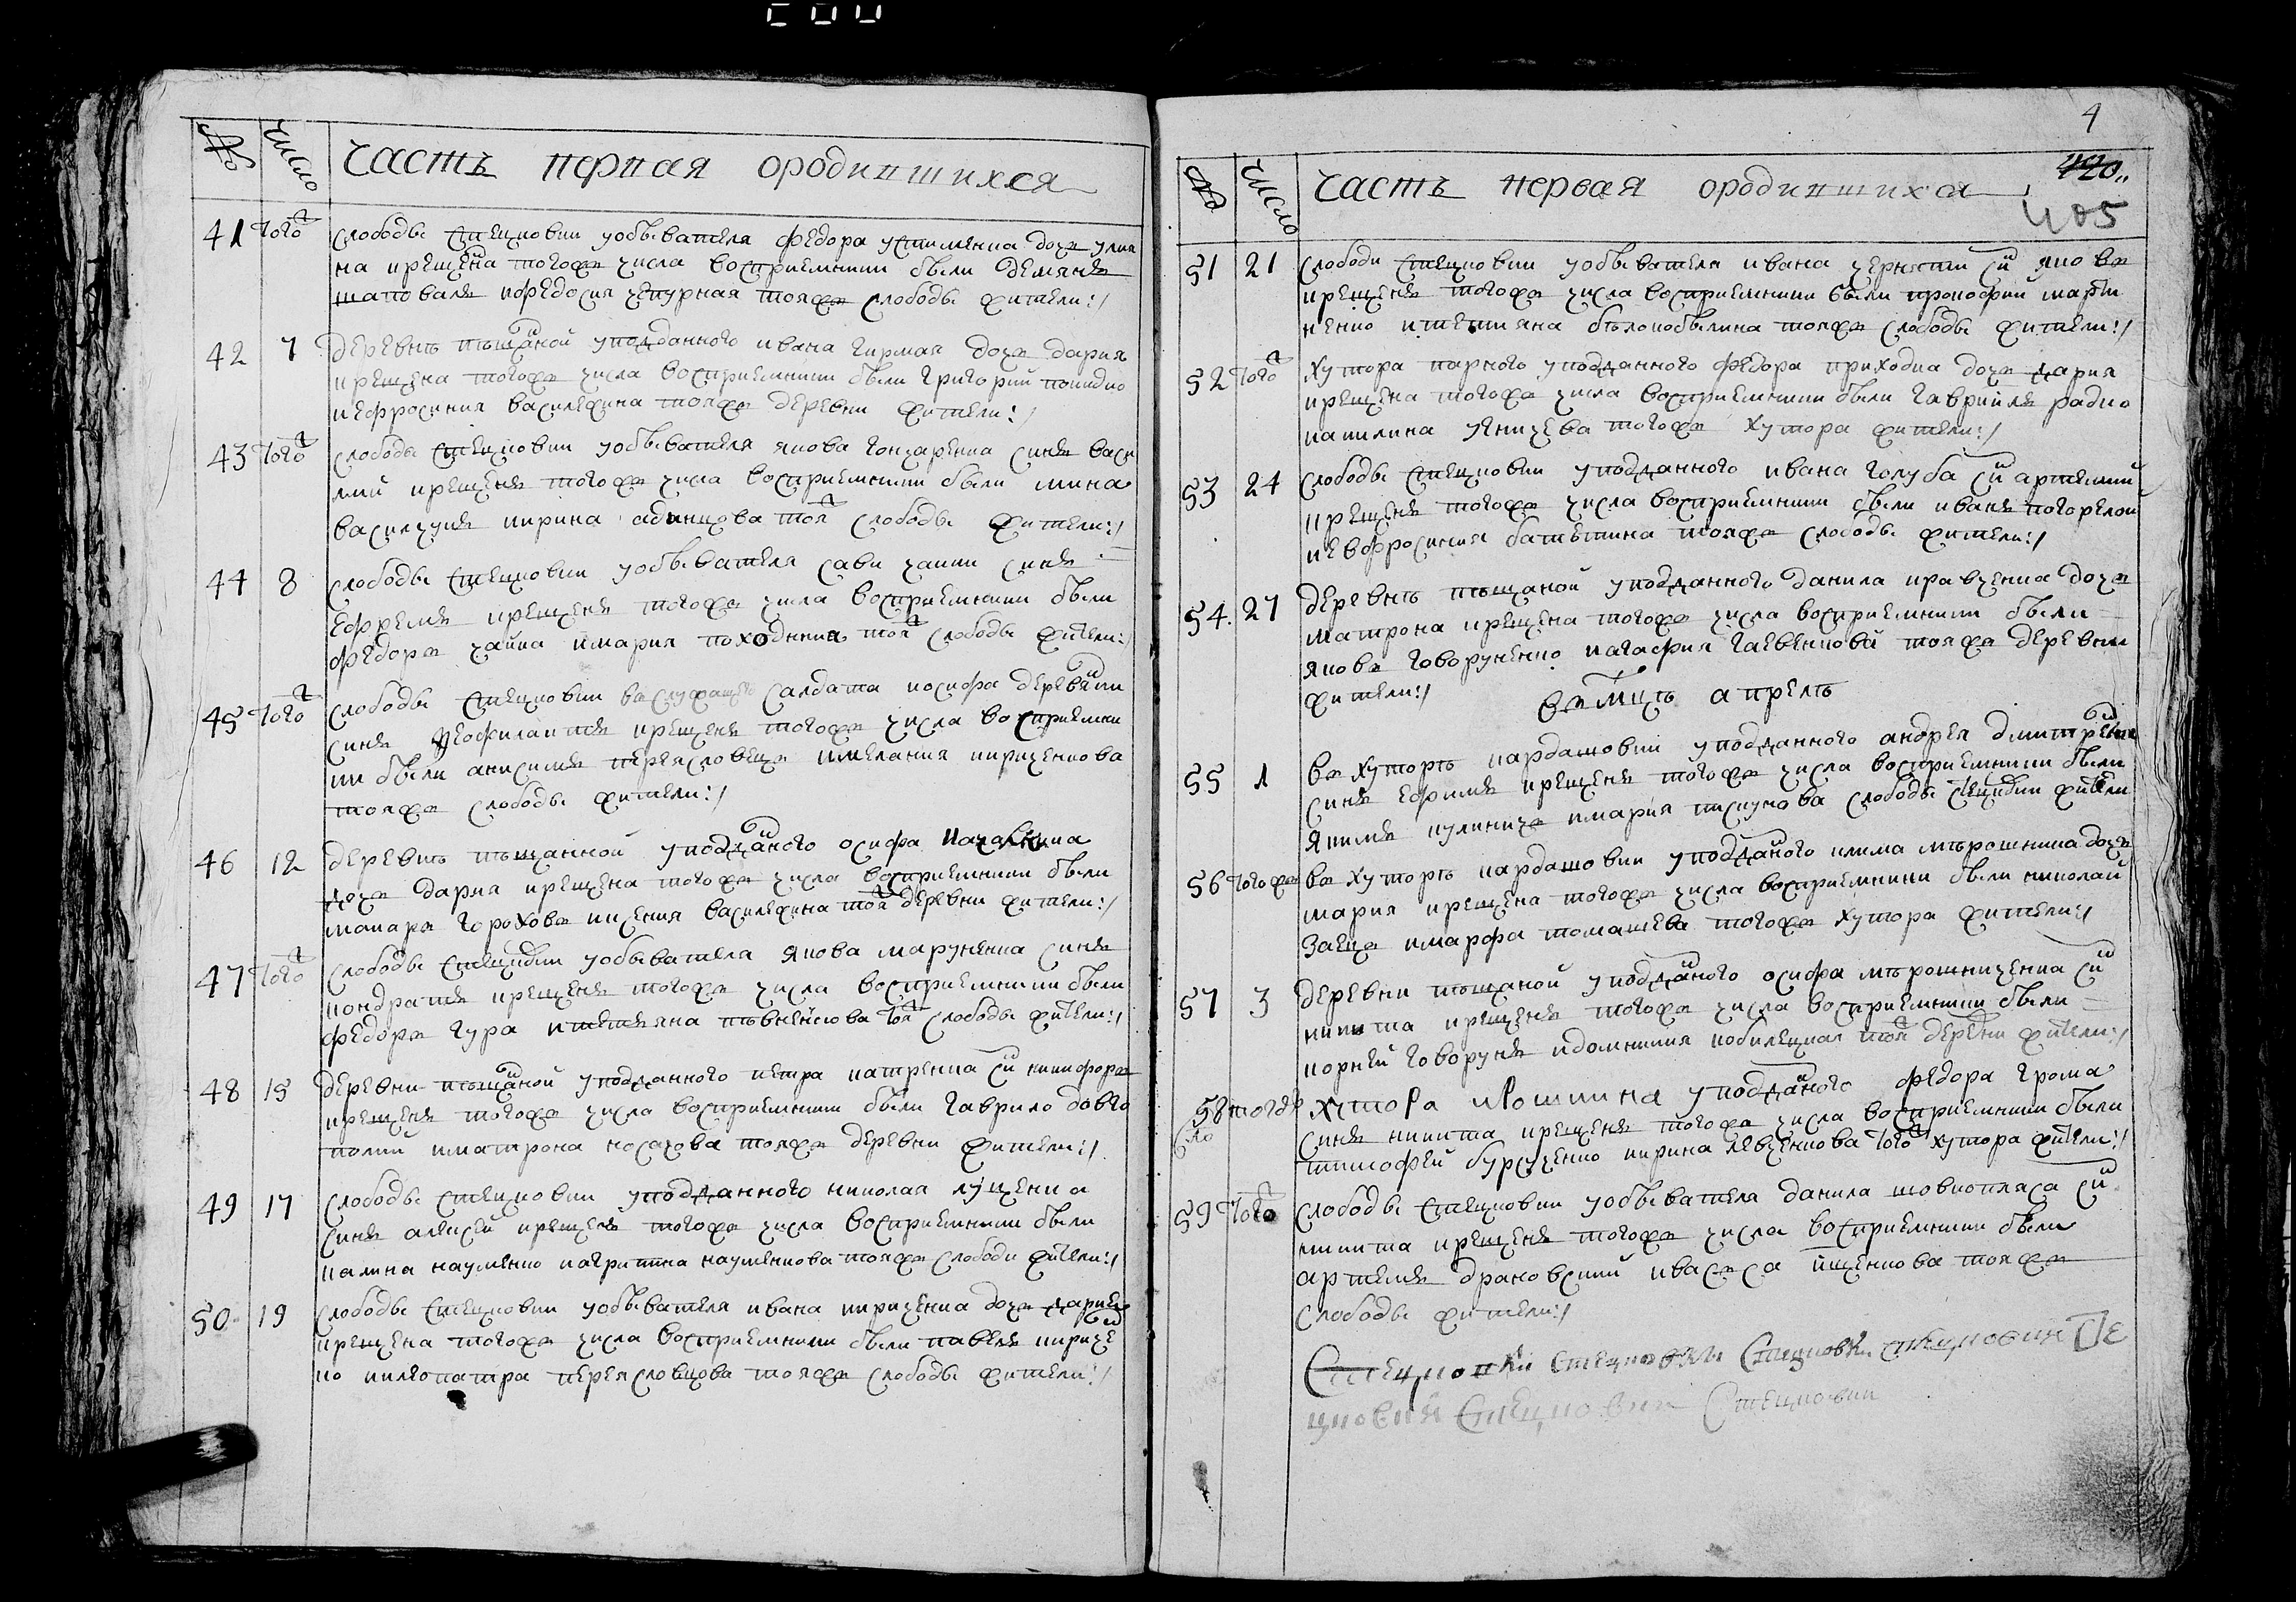 № число Часть первая ородившихся
41 тогож слободы стецковки уобывателя федора устименка дочь улия
на крещена тогожъ числа восприемники были демянъ
шаповалъ ифедосия чепурная тояжъ слободы жители:/
42 7 деревнѣ тѣщаной уподданного ивана гирмая дочь дария
крещена тогожъ числа восприемники были григорий
иефросиния василежина тояжъ деревни жители:/
43 тогож слободы стецковки уобывателя якова гончаренка синъ васи
лий крещенъ тогожъ числа восприемники были мина
василчукъ иирина одинцова тояж слободы жители:/
44 8 слободы стецковки уобывателя сави чайки синъ
ефремъ крещенъ тогожъ числа восприемники были
федоръ чайка имария походнина тояж слободы жители:/
45 тогож слободы стецковки салдата иосифа деревянки
синъ феофилактъ крещенъ тогожъ числа восприемни
ки были анисимъ переясловецъ имелания кириченкова
тояжъ слободы жители:/
46 12 деревнѣ тѣщанной уподданого осифа
дочь дария крещена тогожъ числа восприемники были
макаръ гороховъ иксения василежина тояж деревни жители:/
47 тогож слободы стецковки уобывателя якова марукенка синъ
кондратъ крещенъ тогожъ числа восприемники были
федоръ гура итетяна пѣвнеикова тояж слободы жители:/
48 15 деревни тѣщаной уподданного петра катренка сй никифоръ
крещенъ тогожъ числа восприемники были гаврило довго
полий иматрона носачова тояжъ деревни жители:/
49 17 слободы стецковки уподданного николая луценка
синъ алексей крещенъ тогожъ числа восприемники были
калина науменко иагрипина науменкова тояжъ слободи жители:/
50 19 слободы стецковки уобывателя ивана кириченка дочь дария
крещена тогожъ числа восприемники были павелъ кириче
ко иклеопатра переясловцова тояжъ слободы жители:/
4
420
405
№ число Часть первая ородившихся
51 21 слободи стецковки уобывателя ивана чернятки сй яковъ
крещенъ тогожъ числа восприемники были прокофий марти
ненко итетияна бѣлокобылина тояжъ слободы жители:/
52 тогож хутора парного уподданного федора приходка дочь дария
крещена тогожъ числа восприемники были гавриилъ радко
иакилина тогожъ хутора жители:/
53 24 слободы стецковки уподданного ивана голуба сй артемий
крещенъ тогожъ числа восприемники были иванъ погорелой
иевфросиния тояжъ слободы жители:/
54 27 деревнѣ тѣщаной уподданного данила кравченка дочь
матрона крещена тогожъ числа восприемники были
яковъ говоруненко иагафия гаевенковй тояжъ деревни
жители:/ въ мцѣ апрелѣ
55 1 въ хуторѣ кардашовки уподданного андрея дмитревича
синъ ефимъ крещенъ тогожъ числа восприемники были
якимъ куличичъ имария пискунова слободы стецковки жители
56 тогожъ въ хуторѣ кардашовки уподданого клима мѣрошника дочь
мария крещена тогожъ числа восприемники были николай
заецъ имарфа томашева тогожъ хутора жители:/
57 3 деревни тѣщаной уподданого осифа мѣрошниченка сй
никита крещенъ тогожъ числа восприемники были
корней говорунъ идомникия кобилецкая тояж деревни жители:/
58 хутора уподданого федора грома
синъ никита крещенъ тогожъ числа восприемники были
тимофей бурсученко иирина левченкова тогож хутора жители:/
59 тогож слободы стецковки уобывателя данила шовкопляса сй
никита крещенъ тогожъ числа восприемники были
артемъ драновский ивасса ищенкова тояжъ
слободы жители:/
Стецковки стецковки Стецковки стецковки Сте
цковки Стецковки Стецковки